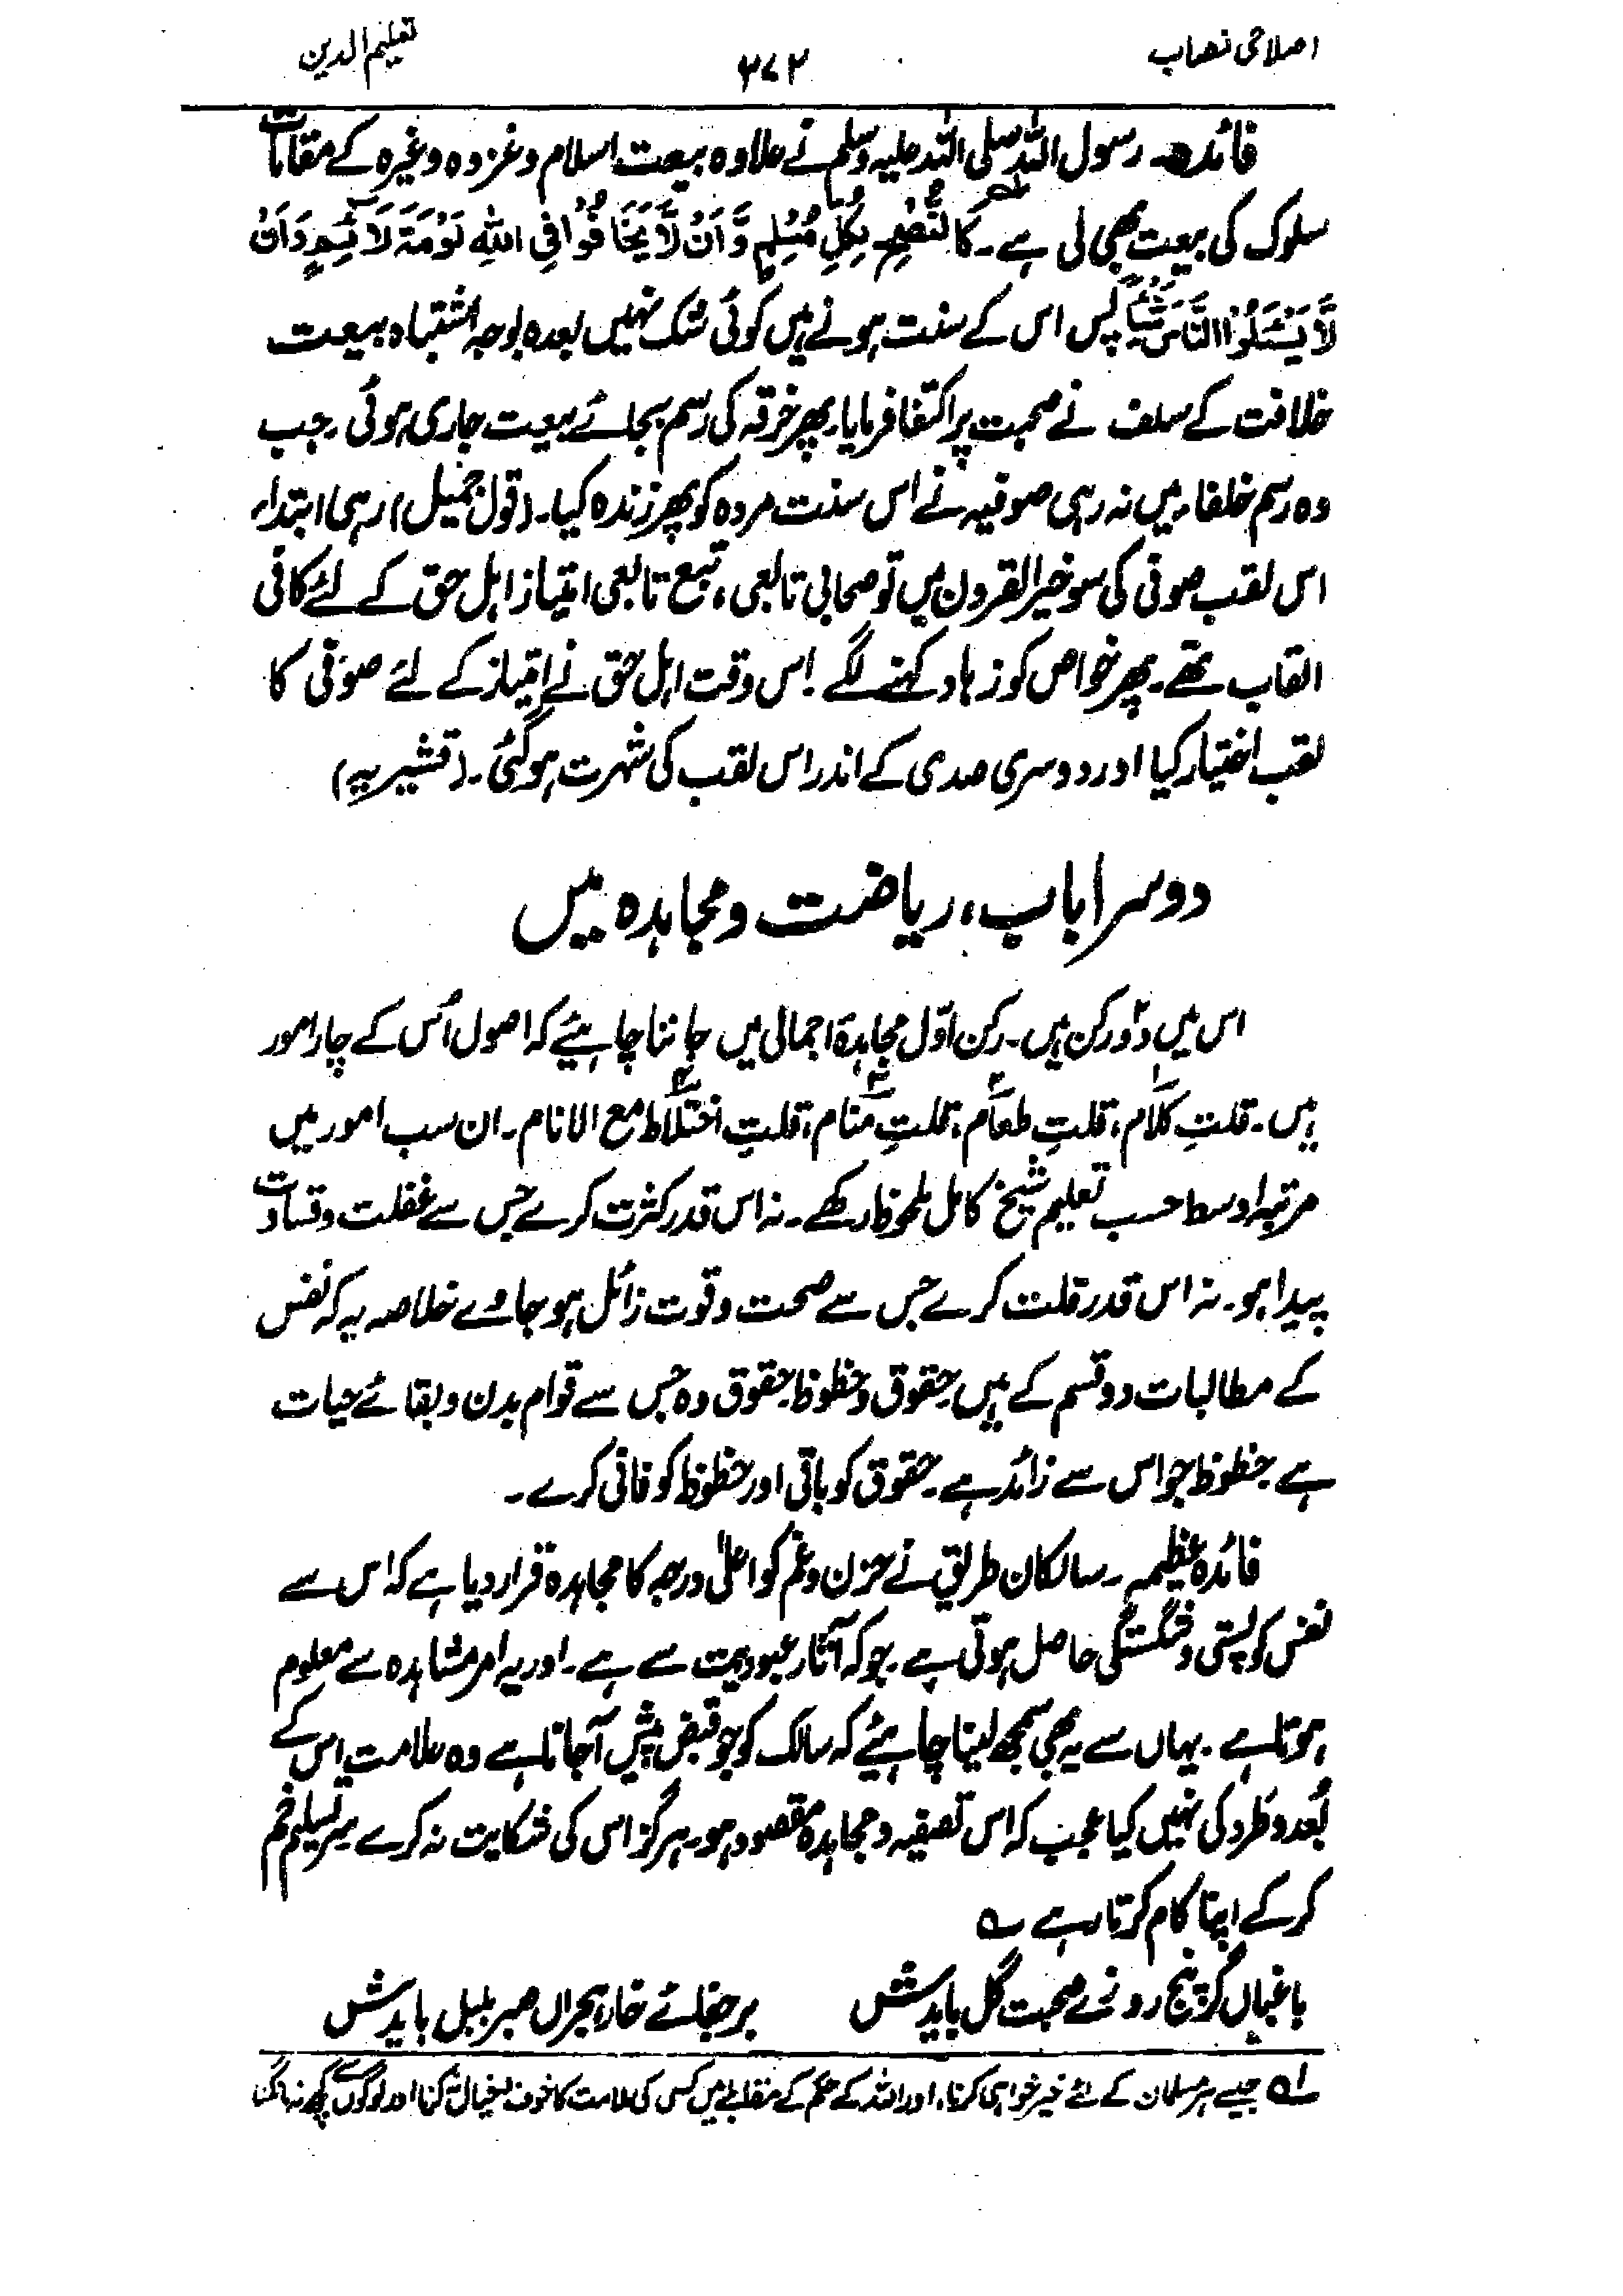 اصلاحی نصاب ۳۷۲ تعلیم الدین
فائدہ۔ رسول اللہ صلی اللہ علیہ وسلم نے علاوہ بیعت اسلام و غزوہ وغیرہ کے مقامات
سلوک کی بیعت بھی لی ہے۔ کَالنُّصْحِ لِکُلِّ مُسْلِمٍ وَّاَنْ لَّا یَخَافُوْا فِی اللہِ لَوْمَۃَ لَائِمٍ وَاَنْ
لَّا یَسْئَلُوا النَّاسَ شَیْئًا پس اس کے سنت ہونے میں کوئی شک نہیں بعدہ بوجہ اشتباہ بیعت
خلافت کے سلف نے صحبت پر اکتفا فرمایا۔ پھر خرقہ کی رسم بجائے بیعت جاری ہوئی۔ جب
وہ رسم خلفاء میں نہ رہی صوفیہ نے اس سنت مردہ کو پھر زندہ کیا۔ (قول جمیل) رہی ابتداء
اس لقب صوفی کی سو خیر القرون میں تو صحابی تابعی، تبع تابعی امتیاز اہل حق کے لئے کافی
القاب تھے۔ پھر خواص کو زہاد کہنے لگے اس وقت اہل حق نے امتیاز کے لئے صوفی کا
لقب اختیار کیا اور دوسری صدی کے اندر اس لقب کی شہرت ہو گئی۔ (قشیریہ)
دوسرا باب، ریاضت و مجاہدہ میں
اس میں دو رکن ہیں۔ رکن اوّل مجاہدۃ اجمالی میں جاننا چاہیئے کہ اصول اُس کے چار امور
ہیں۔ قلتِ کلام، قلتِ طعام، قلتِ منام، قلتِ اختلاط مع الانام۔ ان سب امور میں
مرتبہ اوسط حسب تعلیم شیخ کامل ملحوظ رکھے۔ نہ اس قدر کثرت کرے جس سے غفلت و قساوت
پیدا ہو۔ نہ اس قدر قلت کرے جس سے صحت و قوت زائل ہو جاوے خلاصہ یہ کہ نفس
کے مطالبات دو قسم کے ہیں حقوق و حظوظ۔ حقوق وہ جس سے قوام بدن و بقائے حیات
ہے۔ حظوظ جو اس سے زائد ہے۔ حقوق کو باقی اور حظوظ کو فانی کرے۔
فائدہ عظیمہ۔ سالکان طریق نے حزن و غم کو اعلیٰ درجہ کا مجاہدہ قرار دیا ہے کہ اس سے
نفس کو پستی و شکستگی حاصل ہوتی ہے۔ جو کہ آثار عبودیت سے ہے۔ اور یہ امر مشاہدہ سے معلوم
ہوتا ہے۔ یہاں سے یہ بھی سمجھ لینا چاہیئے کہ سالک کو جو قبض پیش آجاتا ہے وہ علامت اس کے
بُعد و طرد کی نہیں کیا عجب کہ اس تصفیہ و مجاہدہ مقصود ہو۔ ہرگز اس کی شکایت نہ کرے سر تسلیم خم
کر کے اپنا کام کرتا رہے ؎
باغباں گر پنج روزے صحبت گل بایدش بر جفائے خار ہجراں صبر بلبل بایدش
لہ جیسے ہر مسلمان کے لئے خیر خواہی کرنا، اور اللہ کے حکم کے مقابلے میں کسی کی ملامت کا خوف خیال نہ کرنا اور لوگوں سے کچھ نہ مانگنا